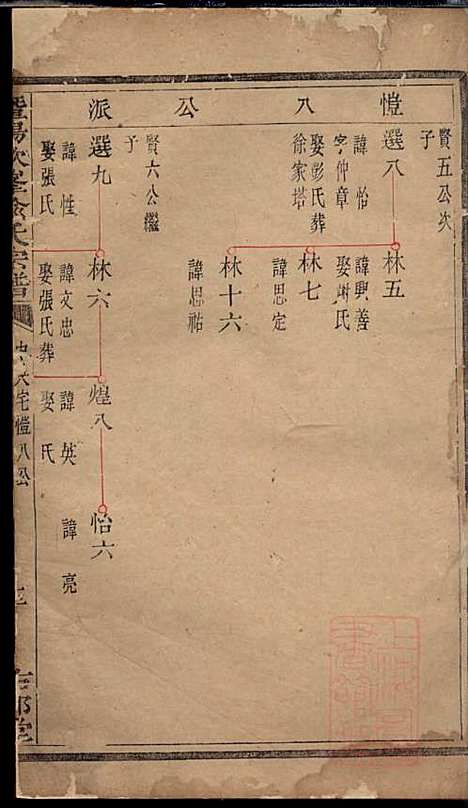 愷八公派
賢五公次
子
選八
諱怡
字仲章
娶彭氏葬
徐家塔
林五
諱興善
娶謝氏
林七
諱思定
林十六
諱思祐
賢六公繼
子
選九
諱性
娶張氏
林六
諱文忠
娶張氏葬
煌八
諱英
娶氏
怡六
諱亮
暨陽次峯俞氏宗譜
宅愷八公